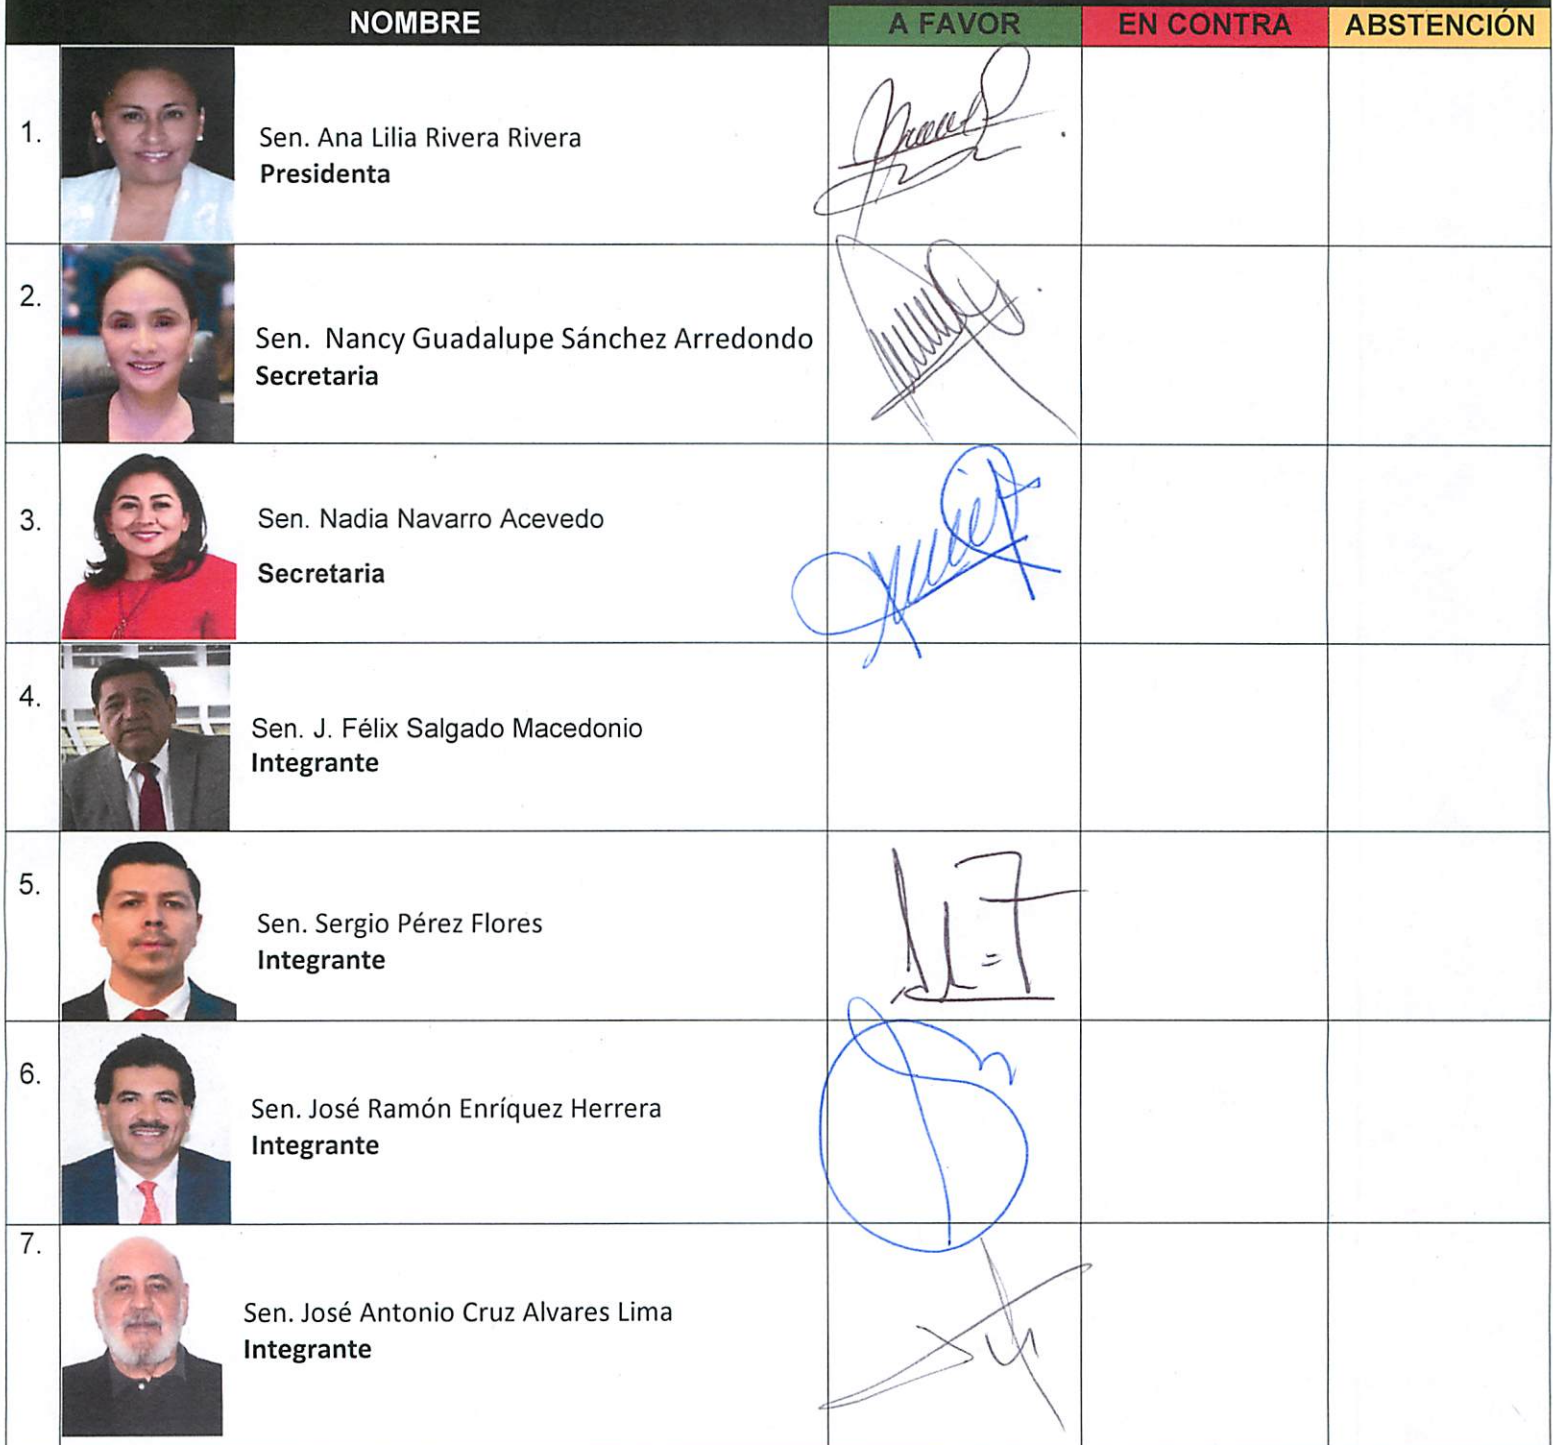 NOMBRE A FAVOR EN CONTRA ABSTENCIÓN
1.
Sen. Ana Lilia Rivera Rivera
Presidenta
2.
Sen. Nancy Guadalupe Sánchez Arredondo
Secretaria
3.
Sen. Nadia Navarro Acevedo
Secretaria
4.
Sen. J. Félix Salgado Macedonio
Integrante
5.
Sen. Sergio Pérez Flores
Integrante
6.
Sen. José Ramón Enríquez Herrera
Integrante
7.
Sen. José Antonio Cruz Alvares Lima
Integrante